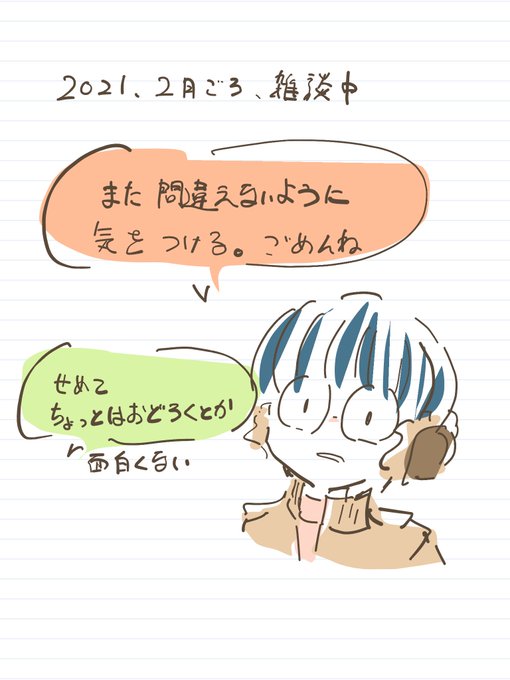 2021、2月ごろ、雑談中
また 間違えないように
気を つける。ごめんね
せめて
ちょっとはおどろくとか
面白くない